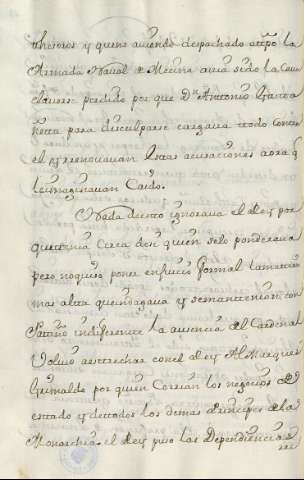 thesoros y quens auiendo despachado atpo la
Armada Naual a Mecina auia sido la Cau
perdido por que Dn Antonio
para disculparse cargaua todo contra
el y renouauan estas acusaciones aora q
le ymaginauan Caido.
Nada desto ignoraua el Rey por
que tenia Cerca de si quien selo ponderaua
pero no quiso poner en juicio formal la materia
mas alta que indagaua y se mantenia con
indiferente la ausencia del Cardenal
Voluio a estrechar con el Rey Al Marques
Grimaldo por quien Corrian los negocios de
estado y de todos los demas Principes de la
Monarchia. el Rey puso las Dependencias